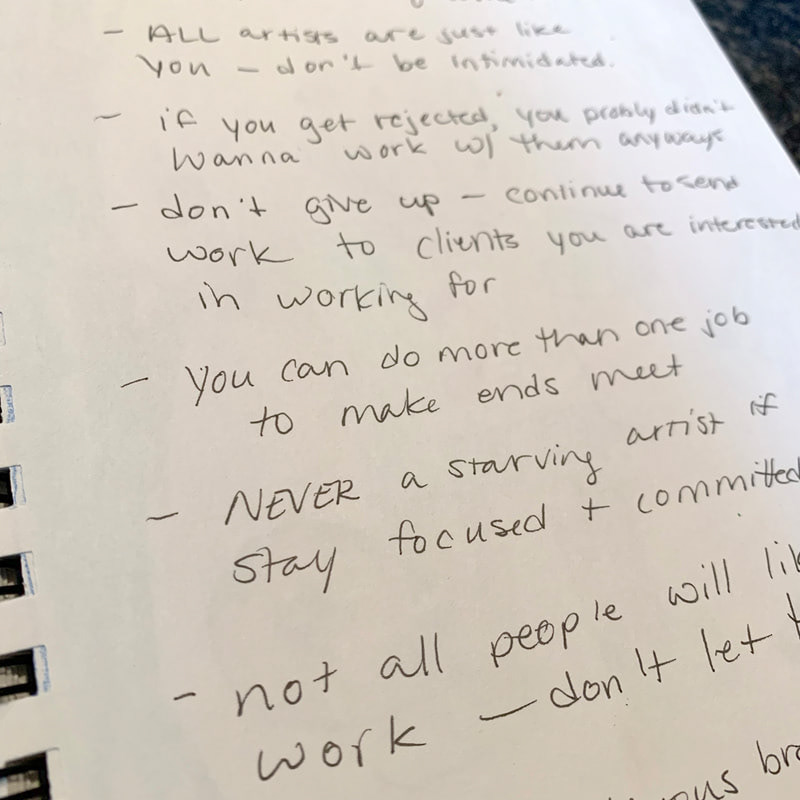 - ALL artists are just like
you - don't be intimidated.
- if you get rejected, you probly didn't
wanna work w/ them anyways
- don't give up - continue to send
work to clients you are interested
in working for
- you can do more than one job
to make ends meet
- NEVER a starving artist if
stay focused + committed
- not all people will
work - don't let